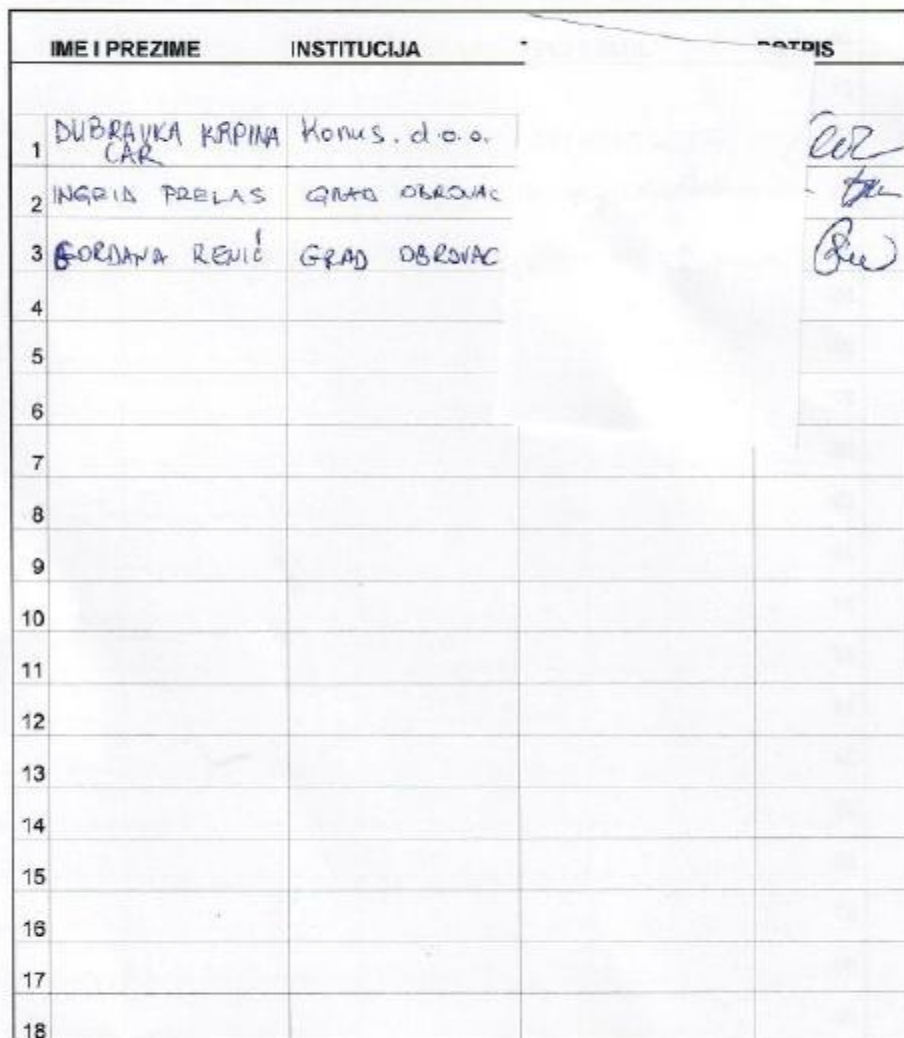 IME I PREZIME INSTITUCIJA POTPIS
1 DUBRAVKA KRPINA Konus. d.o.o.
CAR
2 INGRID PRELAS GRAD OBROVAC
3 GORDANA RENIĆ GRAD OBROVAC
4
5
6
7
8
9
10
11
12
13
14
15
16
17
18